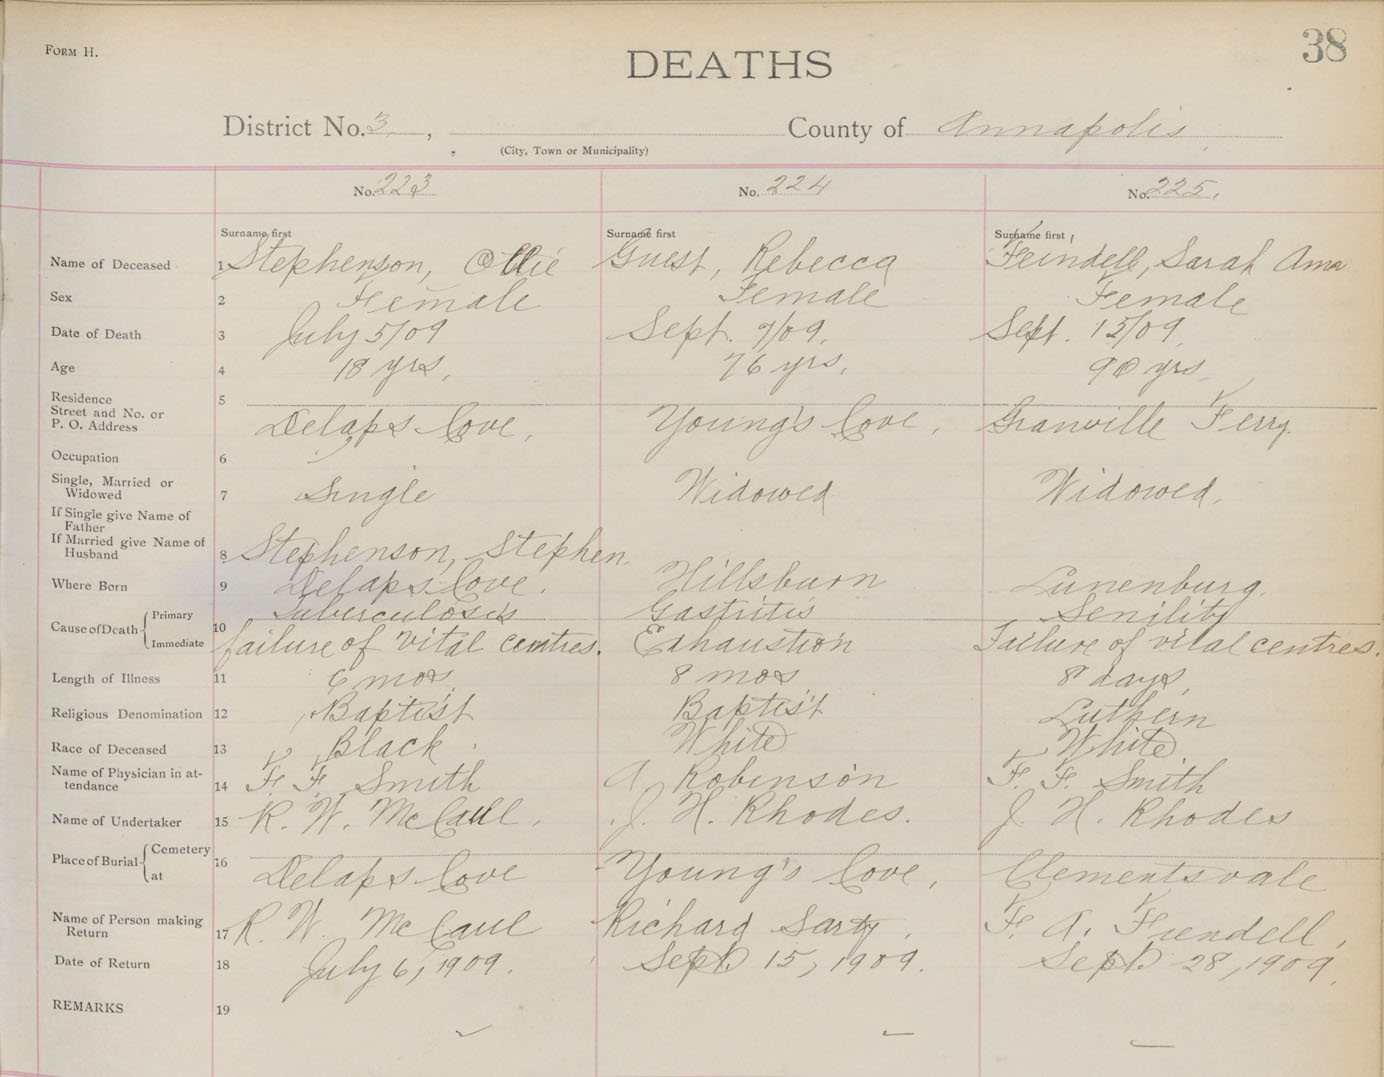 FORM H.
38
DEATHS
District No. 3, County of Annapolis
(City, Town or Municipality)
No. 223 No. 224 No. 225.
Surname first Surname first Surname first
Name of Deceased 1 Stephenson, Ottie Guest, Rebecca Feindell, Sarah Ann
Sex 2 Female Female Female
Date of Death 3 July 5/09 Sept. 7/09. Sept. 15/09
Age 4 18 yrs. 76 yrs. 90 yrs
Residence 5
Street and No. or
P. O. Address Delaps Cove. Young's Cove. Granville Ferry.
Occupation 6
Single, Married or
Widowed 7 Single Widowed Widowed.
If Single give Name of
Father
If Married give Name of
Husband 8 Stephenson, Stephen.
Where Born 9 Delaps Cove. Hillsburn Lunenburg.
Cause of Death 10 Primary Tuberculosis Gastritis Senility
Immediate failure of vital centres. Exhaustion Failure of vital centres.
Length of Illness 11 6 mos. 8 mos 8 days
Religious Denomination 12 Baptist Baptist Luthern
Race of Deceased 13 Black White White
Name of Physician in at-
tendance 14 F. F. Smith A. Robinson F. F. Smith
Name of Undertaker 15 R. W. McCaul. J. H. Rhodes. J. H. Rhodes
Place of Burial 16 Cemetery
at Delaps Cove Young's Cove, Clementsvale
Name of Person making
Return 17 R. W. McCaul Richard Sarty. F. A. Feindell,
Date of Return 18 July 6, 1909. Sept. 15, 1909. Sept. 28, 1909.
REMARKS 19